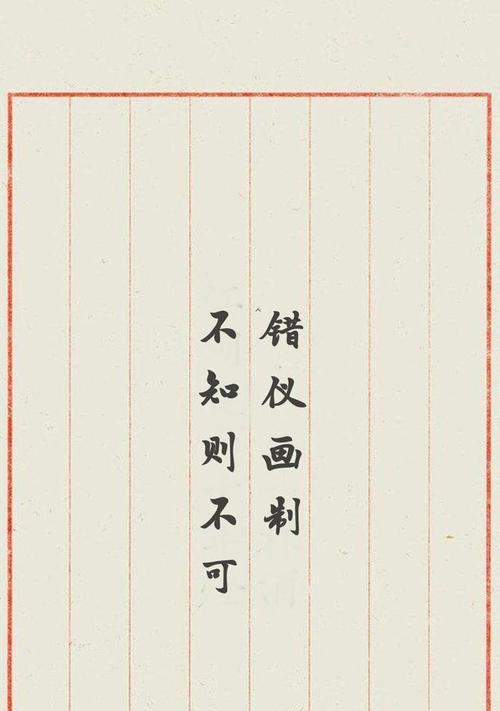 错仪画制
不知则不可